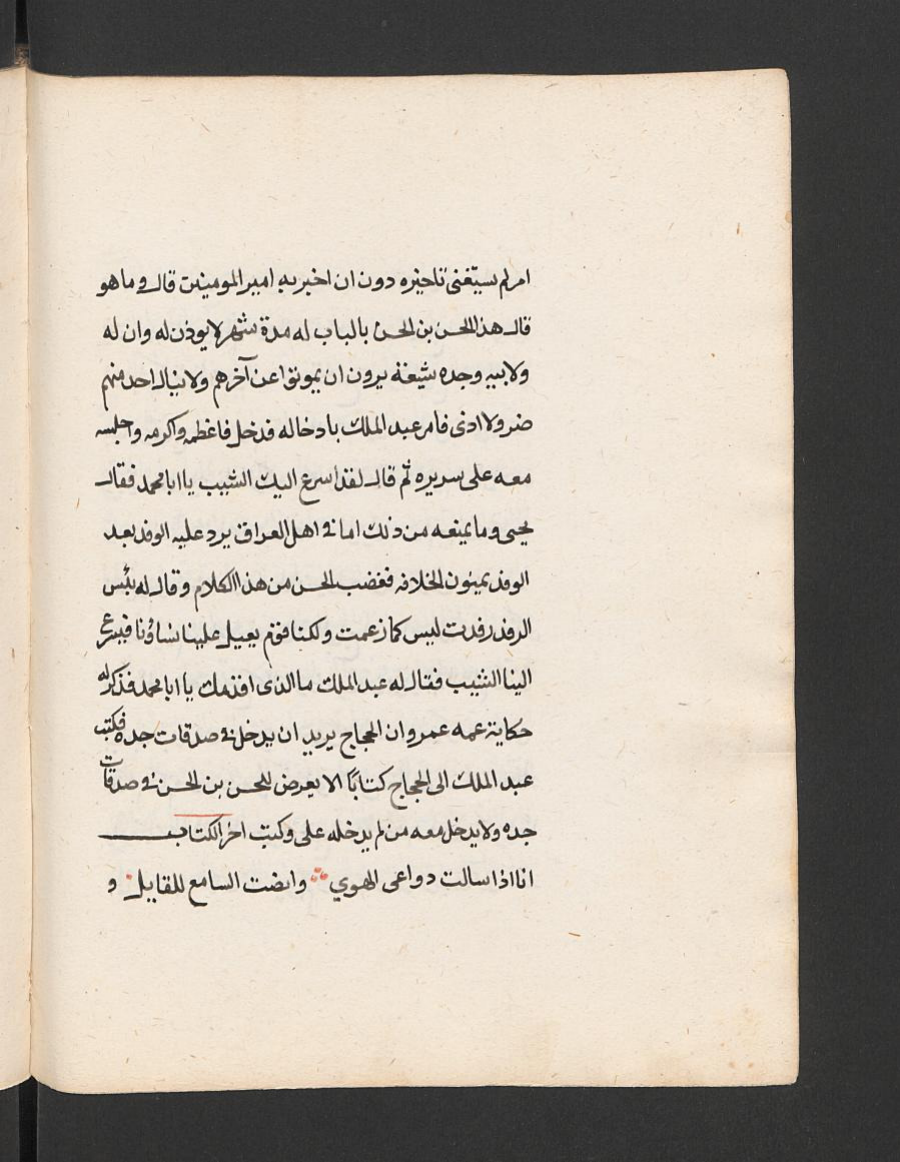 امر لم يستغنى تاخيره دون ان اخبر به امير المومنين قال وما هو
قال هذا الحسن بن الحسن بالباب له مدة شهر لا يوذن له وان له
ولابيه وجده شيعة يرون ان يموتوا عن آخرهم ولا ينال احد منهم
ضر ولا اذى فامر عبد الملك بادخاله فدخل فاعظمه واكرمه واجلسه
معه على سريره ثم قال لقد اسرع اليك الشيب يا ابا محمد فقال
يحيى وما يمنعه من ذلك امانى اهل العراق يرد عليه الوفد بعد
الوفد يمنون الخلافه فغضب الحسن من هذا الكلام وقال له بئس
الرفد رفدت ليس كما زعمت ولكنا قوم يعيل علينا نساؤنا فيسرع
الينا الشيب فقال له عبد الملك ما الذى اقدمك يا ابا محمد فذكر له
حكاية عمه عمر وان الحجاج يريد ان يدخل فى صدقات جده فكتب
عبد الملك الى الحجاج كتابًا الا يعرض للحسن بن الحسن فى صدقات
جده ولا يدخل معه من لم يدخله على وكتب اخر الكتاب
انا اذا سالت دواعى الهوي وانضت السامع للقايل و